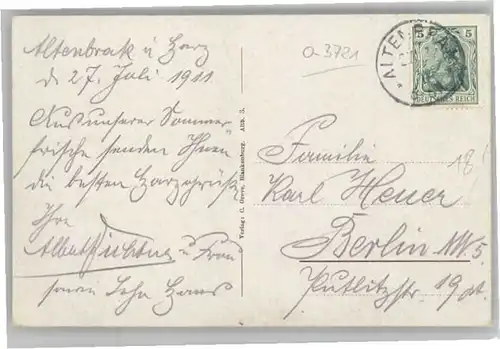 Altenbrak i Harz
d. 27. Juli 1911.
Aus unserer Sommer=
frische senden Ihnen
die besten Harzgrüße
Ihre
Albert u Frau
sowie Sohn Hans
Verlag: C. Grove, Blankenburg. Alth. 3.
o-3721
ALTENBRAK
5 5
DEUTSCHES REICH
Familie
Karl Heuer
18
Berlin NW5.
Putlitzstr. 19 pt.